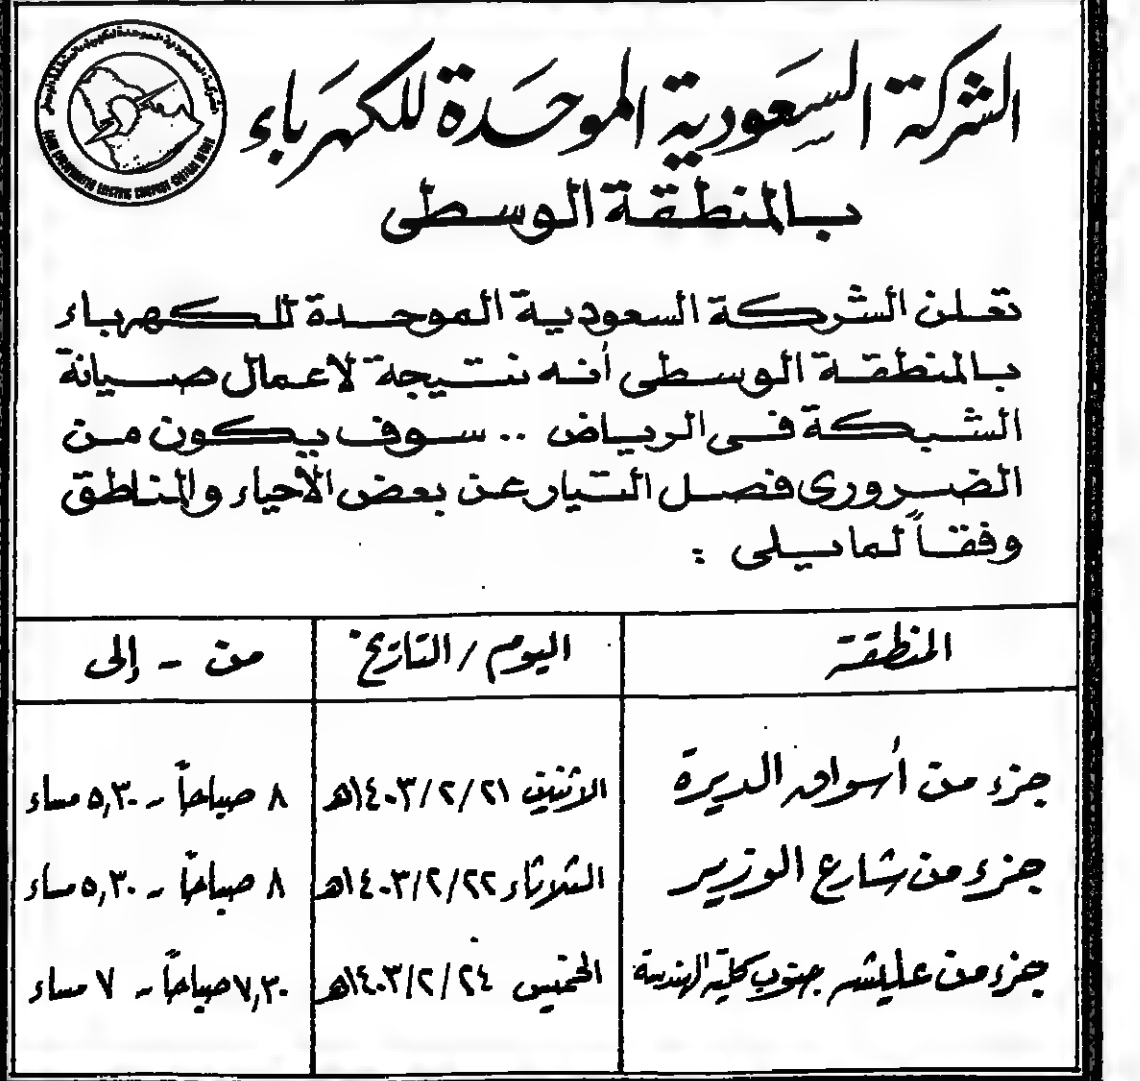 الشركة السعودية الموحدة للكهرباء
بالمنطقة الوسطى
تعلن الشركة السعودية الموحدة للكهرباء
بالمنطقة الوسطى أنه نتيجة لأعمال صيانة
الشبكة في الرياض .. سوف يكون من
الضروري فصل التيار عن بعض الأحياء والمناطق
وفقاً لما يلي :
المنطقة اليوم / التاريخ من - إلى
جزء من أسواق الديرة الاثنين ٢١/٢/١٤٠٣هـ ٨ صباحاً - ٥,٣٠ مساء
جزء من شارع الوزير الثلاثاء ٢٢/٢/١٤٠٣هـ ٨ صباحاً - ٥,٣٠ مساء
جزء من عليشه جنوب كلية الهندسة الخميس ٢٤/٢/١٤٠٣هـ ٧,٣٠ صباحاً - ٧ مساء